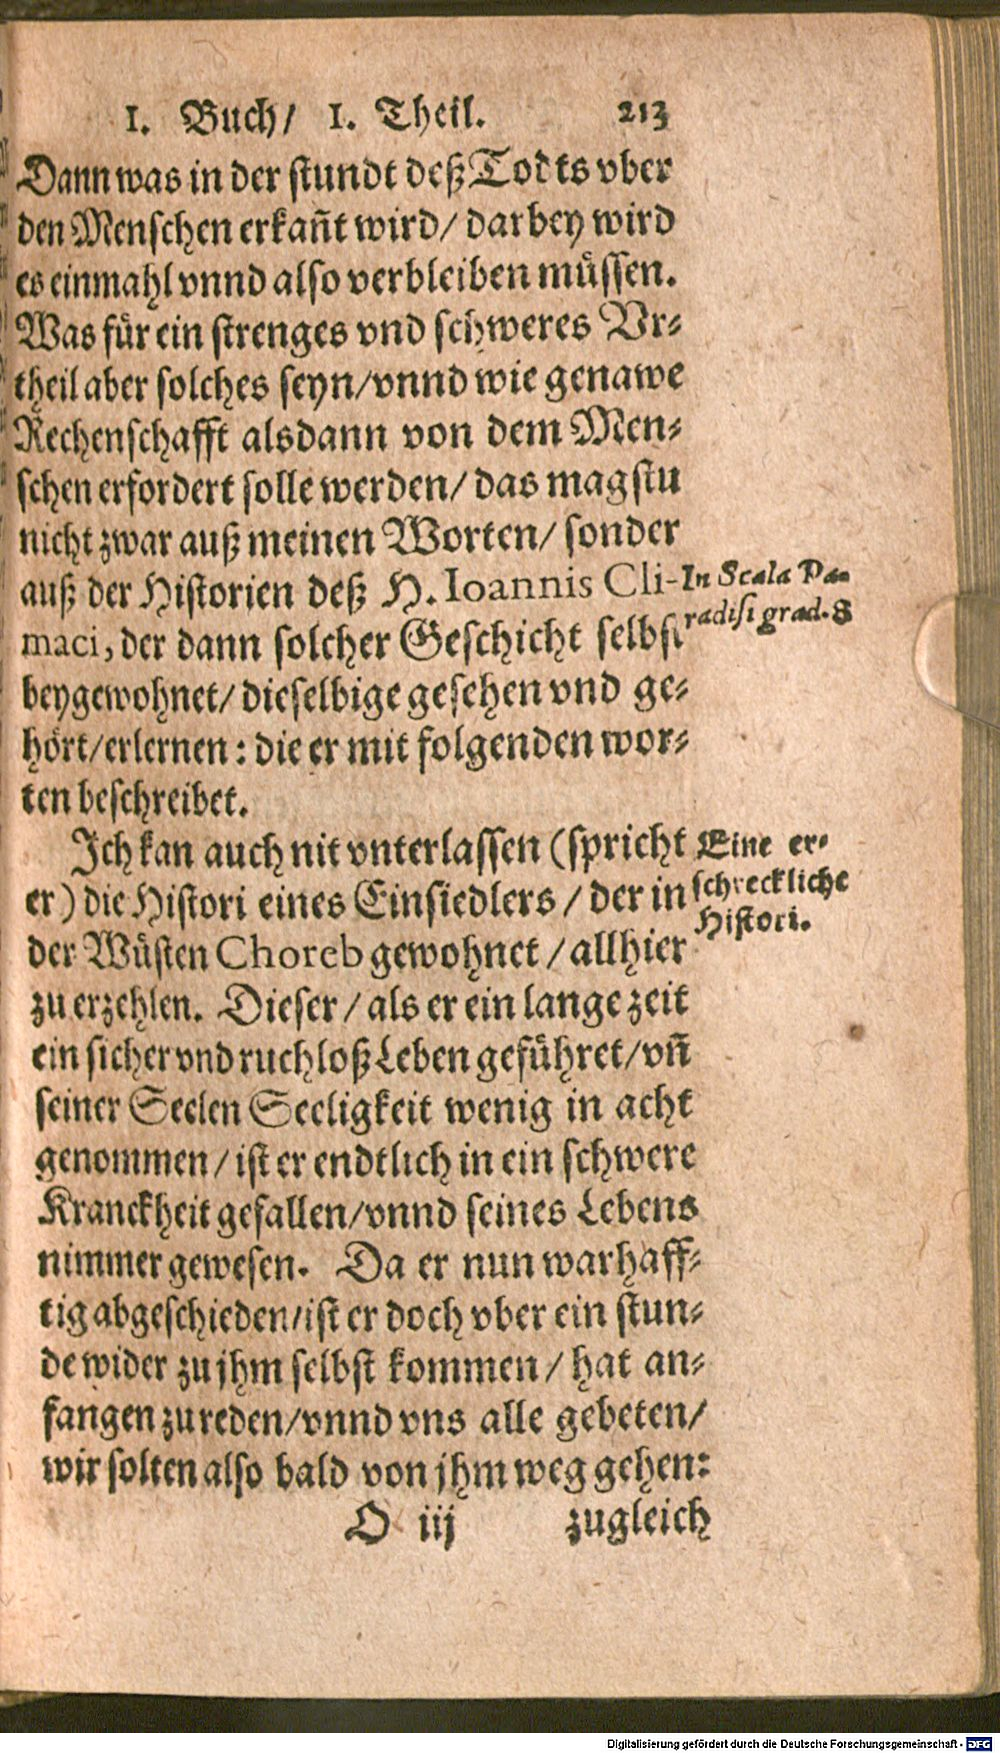 1. Buch/ 1. Theil. 213
Dann was in der stundt deß Todts vber
den Menschen erkañt wird/ darbey wird
es einmahl vnnd also verbleiben müssen.
Was für ein strenges vnd schweres Vr-
theil aber solches seyn/vnnd wie genawe
Rechenschafft alsdann von dem Men-
schen erfordert solle werden/ das magstu
nicht zwar auß meinen Worten/ sonder
auß der Historien deß H. Ioannis Cli-
maci, der dann solcher Geschicht selbst
beygewohnet/ dieselbige gesehen vnd ge-
hört/erlernen: die er mit folgenden wor-
ten beschreibet.
In Scala Pa-
radisi grad. 8
Ich kan auch nit vnterlassen (spricht
er) die Histori eines Einsiedlers / der in
der Wüsten Choreb gewohnet / allhier
zu erzehlen. Dieser / als er ein lange zeit
ein sicher vnd ruchloß Leben geführet/vñ
seiner Seelen Seeligkeit wenig in acht
genommen / ist er endtlich in ein schwere
Kranckheit gefallen/vnnd seines Lebens
nimmer gewesen. Da er nun warhaff-
tig abgeschieden/ist er doch vber ein stun-
de wider zu jhm selbst kommen / hat an-
fangen zu reden/vnnd vns alle gebeten/
wir solten also bald von jhm weg gehen:
Eine er-
schreckliche
Histori.
O iij zugleich
Digitalisierung gefördert durch die Deutsche Forschungsgemeinschaft - DFG